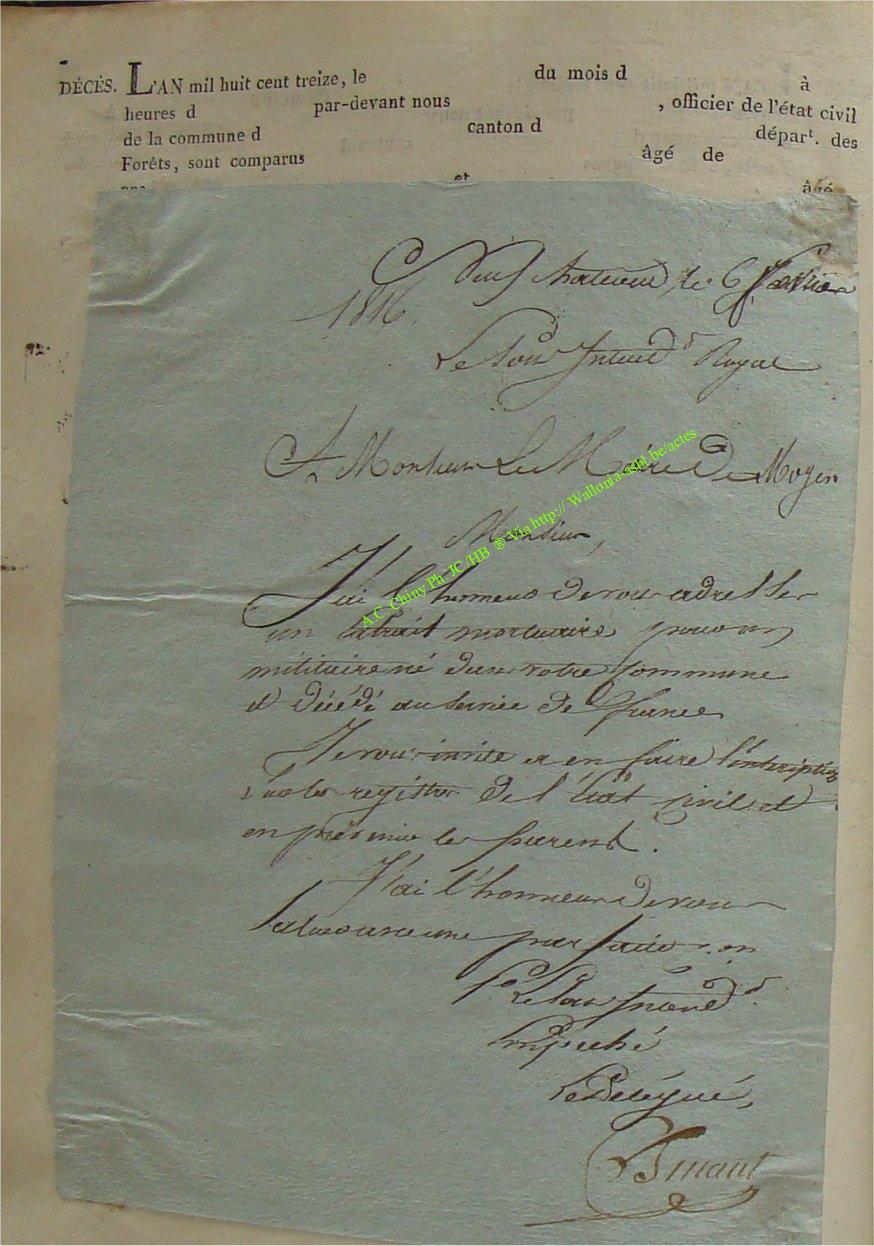 DÉCÈS. L'AN mil huit cent treize, le du mois d à
heures d par-devant nous , officier de l'état civil
de la commune d canton d départ. des
Forêts, sont comparus âgé de
ans et âgé
Neufchateau le 6 février
1816.
Le Sous Intend.t Royal
A Monsieur Le Maire De Moyen
Monsieur,
J'ai l'honneur de vous adresser
un extrait mortuaire pour un
militaire né dans votre commune
et décédé au service de france
Je vous invite a en faire l'inscription
sur les registres de l'état civil et
en prévenir les parents.
J'ai l'honneur de vous
saluer avec une parfaite
Le Sous Intend.t
Empeché
Le Délégué,
A.C. Chiny Ph JC/HB ® Via http:// Wallonia-asbl.be/actes